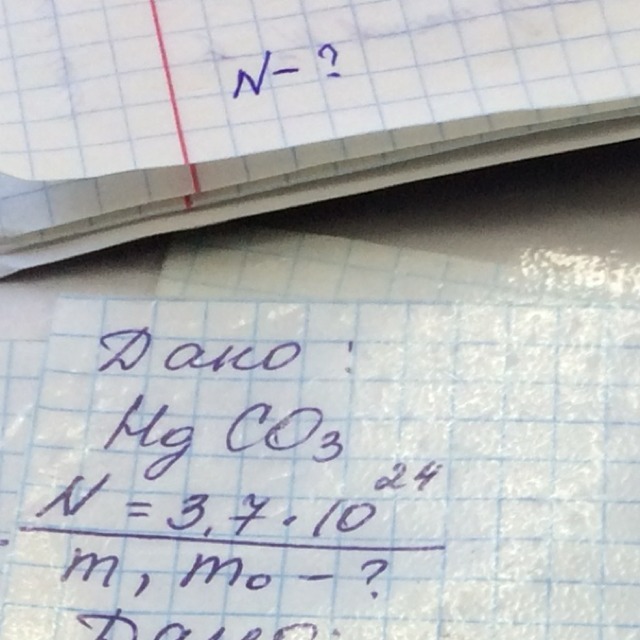 N - ?
Дано :
Mg CO₃
N = 3,7 · 10²⁴
m, m₀ - ?
Дано: